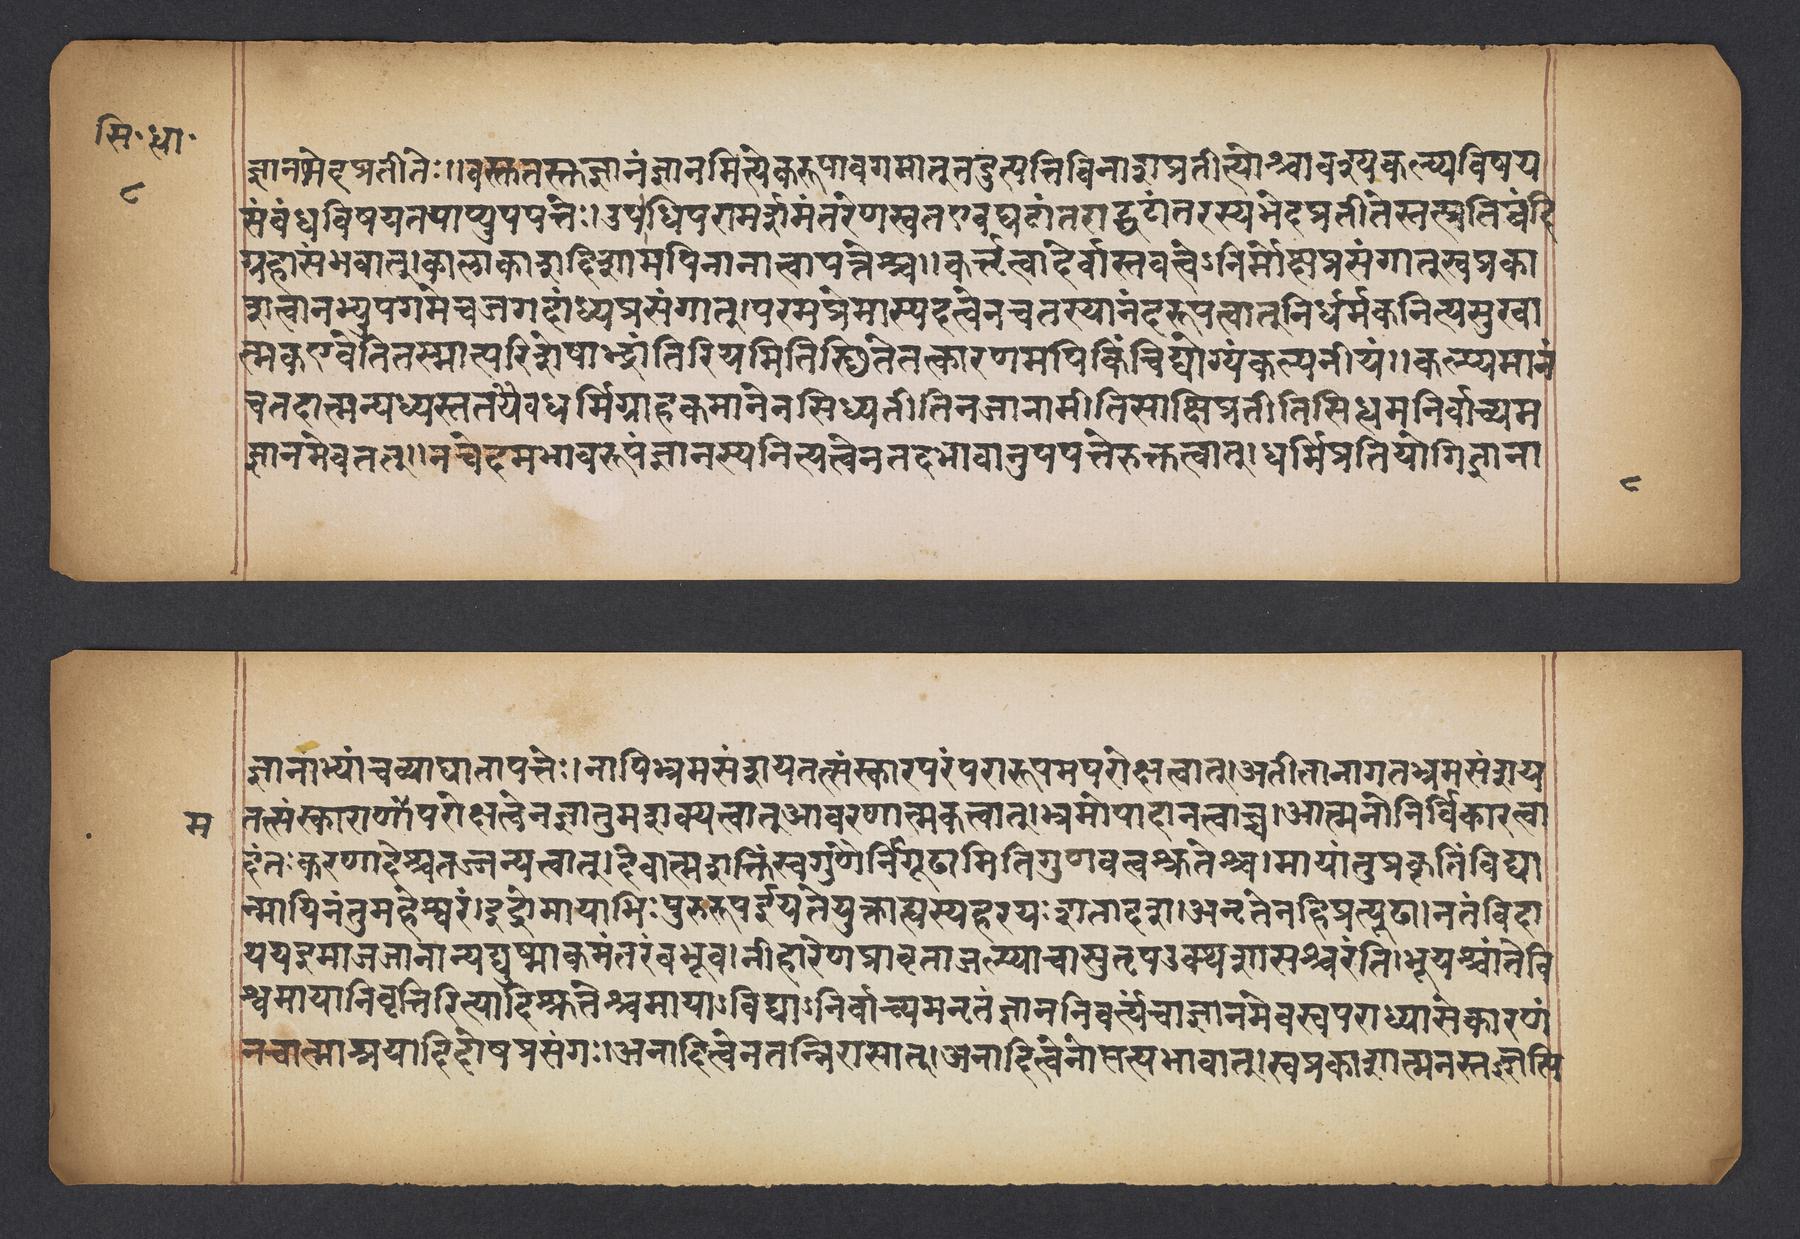 सि॰ धा॰
८
ज्ञानभेदप्रतीतेः॥वस्तुतस्तुज्ञानंज्ञानमित्येकरूपावगमात्नदुत्पत्तिविनाशप्रतीत्योश्चावश्यकल्प्यविषय
संबंधविषयतयाप्युपपत्तेः।उपाधिपरामर्शमंतरेणस्वतएवघटांतराद्घटांतरस्यभेदप्रतीतेस्तत्प्रतिबंदि
ग्रहासंभवात्।कालाकाशदिशामपिनानात्वापत्तेश्च॥कर्तृत्वादेर्वास्तवत्वेऽनिर्मोक्षप्रसंगात्स्वप्रका
शत्वानभ्युपगमेचजगदांध्यप्रसंगात्।परमप्रेमास्पदत्वेनचतस्यानंदरूपत्वात्निर्धर्मकनित्यसुखा
त्मकएवेतितस्मात्परिशेषाद्भ्रांतिरियमितिस्थितेतत्कारणमपिकिंचिद्योग्यंकल्पनीयं॥कल्प्यमानं
चतदात्मन्यध्यस्ततयैवधर्मिग्राहकमानेनसिध्यतीतिनजानामीतिसाक्षिप्रतीतिसिद्धमनिर्वाच्यम
ज्ञानमेवतत्॥नचेदमभावरूपंज्ञानस्यनित्यत्वेनतदभावानुपपत्तेरुक्तत्वात्।धर्मिप्रतियोगिज्ञाना
८
ज्ञानाभ्यांचव्याघातापत्तेः।नापिभ्रमसंशयतत्संस्कारपरंपरारूपमपरोक्षत्वात्।अतीतानागतभ्रमसंशय
म तत्संस्काराणांपरोक्षत्वेनज्ञातुमशक्यत्वात्आवरणात्मकत्वात्।भ्रमोपादानत्वाच्च।आत्मनोनिर्विकारत्वा
दंतःकरणादेश्चतज्जन्यत्वात्।देवात्मशक्तिंस्वगुणैर्निगूढामितिगुणवत्वश्रुतेश्च।मायांतुप्रकृतिंविद्या
न्मायिनंतुमहेश्वरं।इंद्रोमायाभिःपुरुरूपईयतेयुक्ताह्यस्यहरयःशतादश।अनृतेनहिप्रत्यूढा।नतंविदा
थयइमाजजानान्यद्युष्माकमंतरंबभूव।नीहारेणप्रावृताजल्प्याचासुतृपउक्थशासश्चरंति।भूयश्चांतेवि
श्वमायानिवृत्तिरित्यादिश्रुतेश्चमायाऽविद्याऽनिर्वाच्यमनृतंज्ञाननिवर्त्यंचाज्ञानमेवस्वपराध्यासेकारणं
नचात्माश्रयादिदोषप्रसंगः।अनादित्वेनतन्निरासात्।अनादित्वेनोत्पत्त्यभावात्।स्वप्रकाशात्मनस्तज्ज्ञप्ति